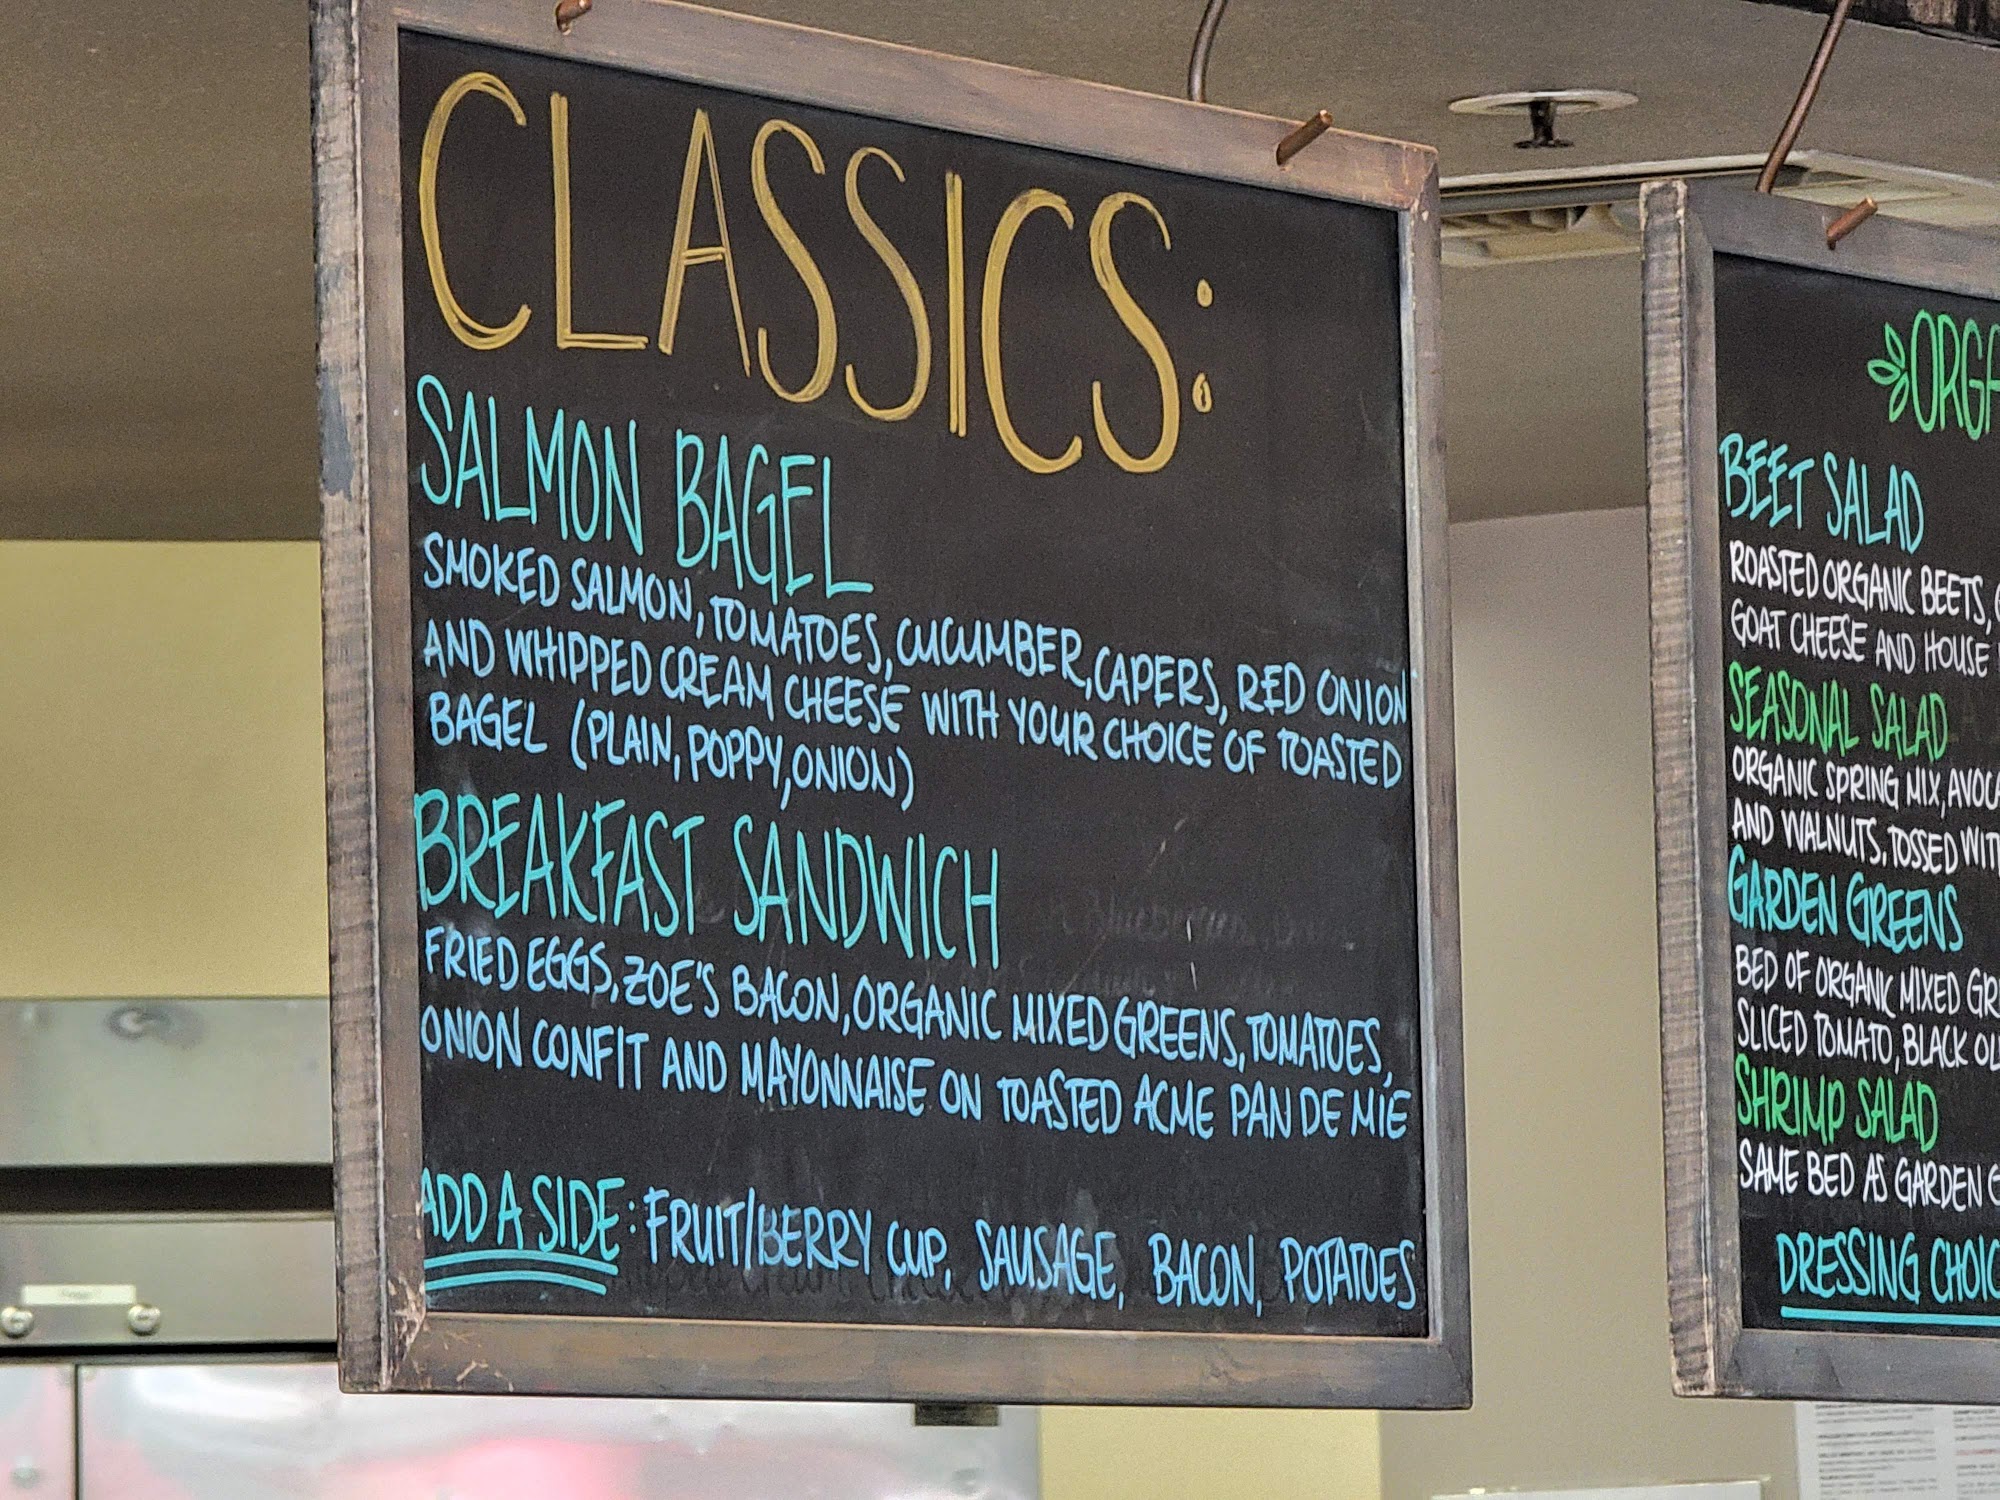 CLASSICS:
SALMON BAGEL
SMOKED SALMON, TOMATOES, CUCUMBER, CAPERS, RED ONION
AND WHIPPED CREAM CHEESE WITH YOUR CHOICE OF TOASTED
BAGEL (PLAIN, POPPY, ONION)
BREAKFAST SANDWICH
FRIED EGGS, ZOE'S BACON, ORGANIC MIXED GREENS, TOMATOES,
ONION CONFIT AND MAYONNAISE ON TOASTED ACME PAN DE MIE
ADD A SIDE: FRUIT/BERRY CUP, SAUSAGE, BACON, POTATOES
ORGA
BEET SALAD
ROASTED ORGANIC BEETS,
GOAT CHEESE AND HOUSE
SEASONAL SALAD
ORGANIC SPRING MIX, AVOCA
AND WALNUTS, TOSSED WITH
GARDEN GREENS
BED OF ORGANIC MIXED GRE
SLICED TOMATO, BLACK OL
SHRIMP SALAD
SAME BED AS GARDEN G
DRESSING CHOIC